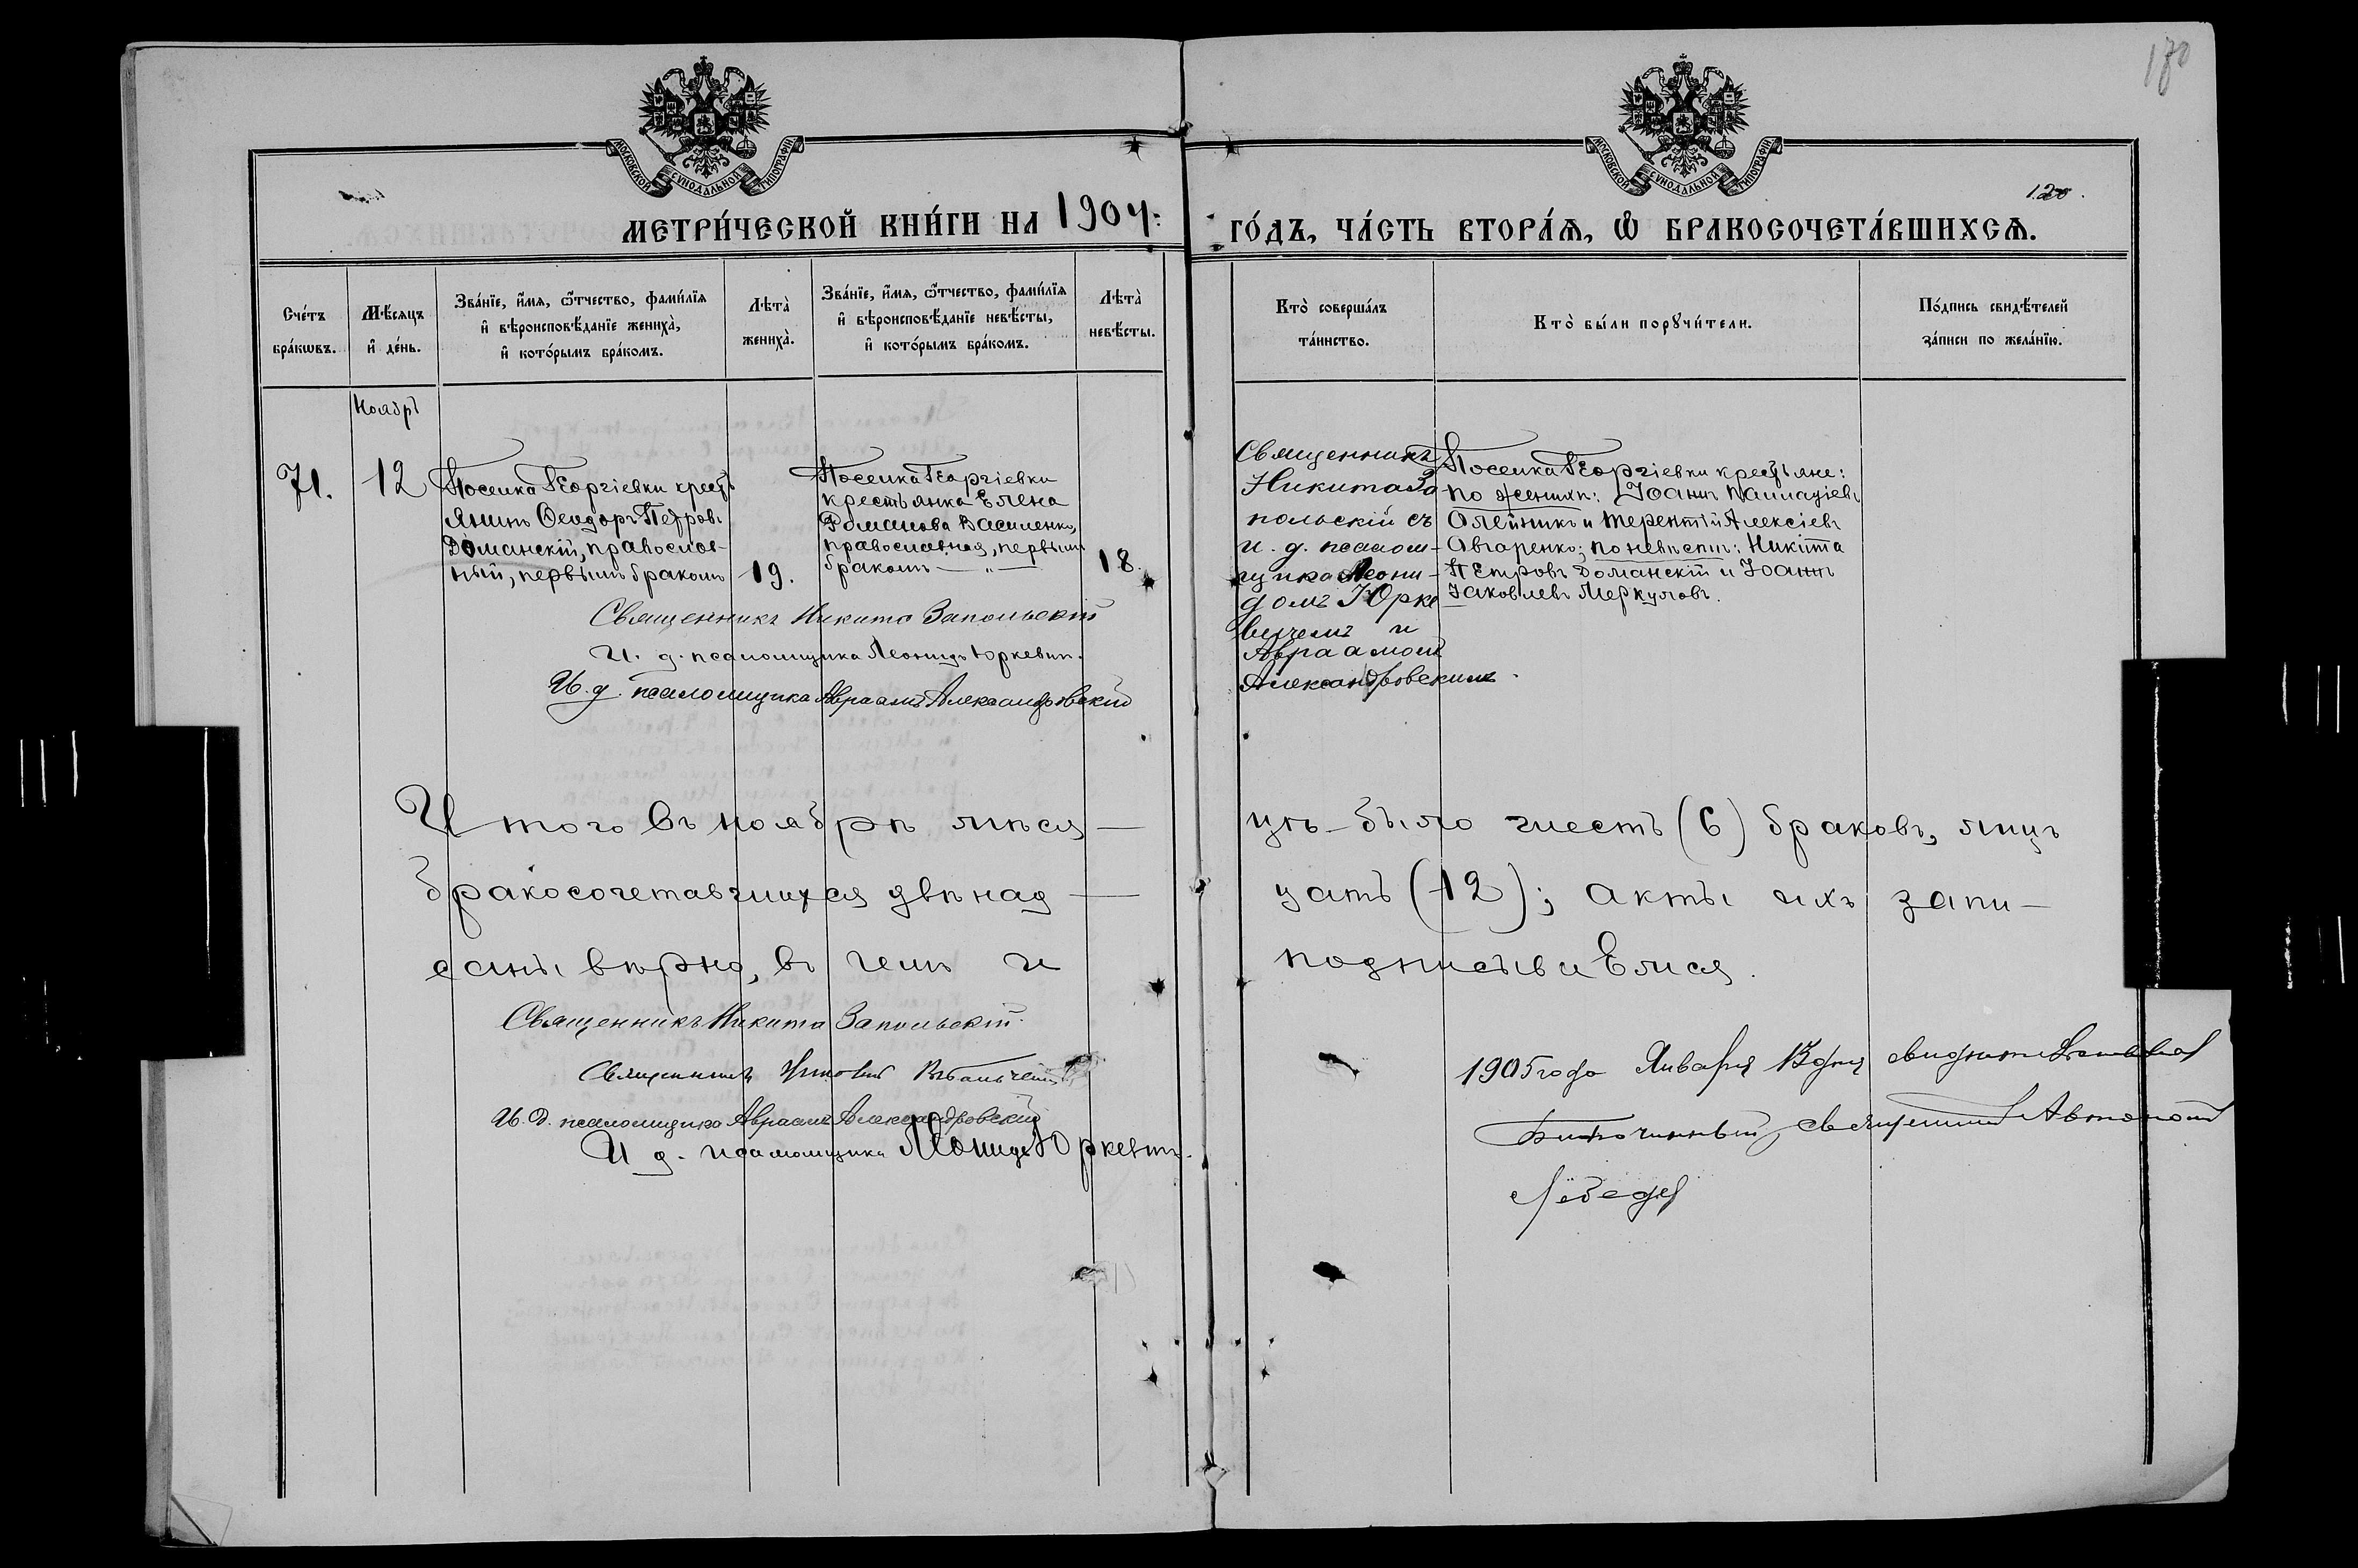 170
МОСКОВСКОЙ СѴНОДАЛЬНОЙ ТИПОГРАФІИ
МОСКОВСКОЙ СѴНОДАЛЬНОЙ ТИПОГРАФІИ
120.
МЕТРИ́ЧЕСКОЙ КНИ́ГИ НА 1904: ГО́ДЪ, ЧА́СТЬ ВТОРА́Ѧ, Ѽ БРАКОСОЧЕТА́ВШИХСѦ.
Сче́тъ
бра́кѡвъ.
Мѣ́сяцъ
и҆ де́нь.
Зва́нїе, и҆́мя, ѻ҆́тчество, фами́лїя
и҆ вѣроисповѣ́данїе жениха̀,
и҆ кото́рымъ бра́комъ.
Лѣта̀
жениха̀.
Зва́нїе, и҆́мя, ѻ҆́тчество, фами́лїя
и҆ вѣроисповѣ́данїе невѣ́сты,
и҆ кото́рымъ бра́комъ.
Лѣта̀
невѣ́сты.
Кто̀ соверша́лъ
та́инство.
Кто̀ бы́ли порꙋчи́тели.
По́дпись свидѣ́телей
за́писи по жела́нїю.
Ноябрь
71.
12
Поселка Георгіевки кресть
янинъ Ѳеодоръ Петровъ
Доманскій, православ-
ный, первымъ бракомъ
19.
Поселка Георгіевки
крестьянка Елена
Романова Василенко,
православная, первымъ
бракомъ — „ —
18.
Священникъ
Никита За
польскій съ
и. д. псалом-
щика Леони-
домъ Юрке
вичемъ и
Авраамомъ
Александровскимъ.
Поселка Георгіевки крестьяне:
по женихѣ: Іоаннъ Палладіевъ
Олейникъ и Терентій Алексіевъ
Авторенко; по невѣстѣ: Никита
Петровъ Доманскій и Іоаннъ
Іаковлевъ Меркуловъ.
Священникъ Никита Запольскій
И. д. псаломщика Леонидъ Юркевич.
И. д. псаломщика Авраамъ Александровскій
Итого въ ноябрѣ мѣся— цѣ было шесть (6) браковъ, лицъ
бракосочетавшихся двѣнад— цать (12); акты ихъ запи—
саны вѣрно, въ чемъ и подписываемся.
Священникъ Никита Запольскій.
Священникъ
И. д. псаломщика Авраамъ Александровскій
И. д. псаломщика Леонидъ Юркевичъ.
1905 года Января 13 дня
Благочинный, священникъ Автономъ
Лебедев